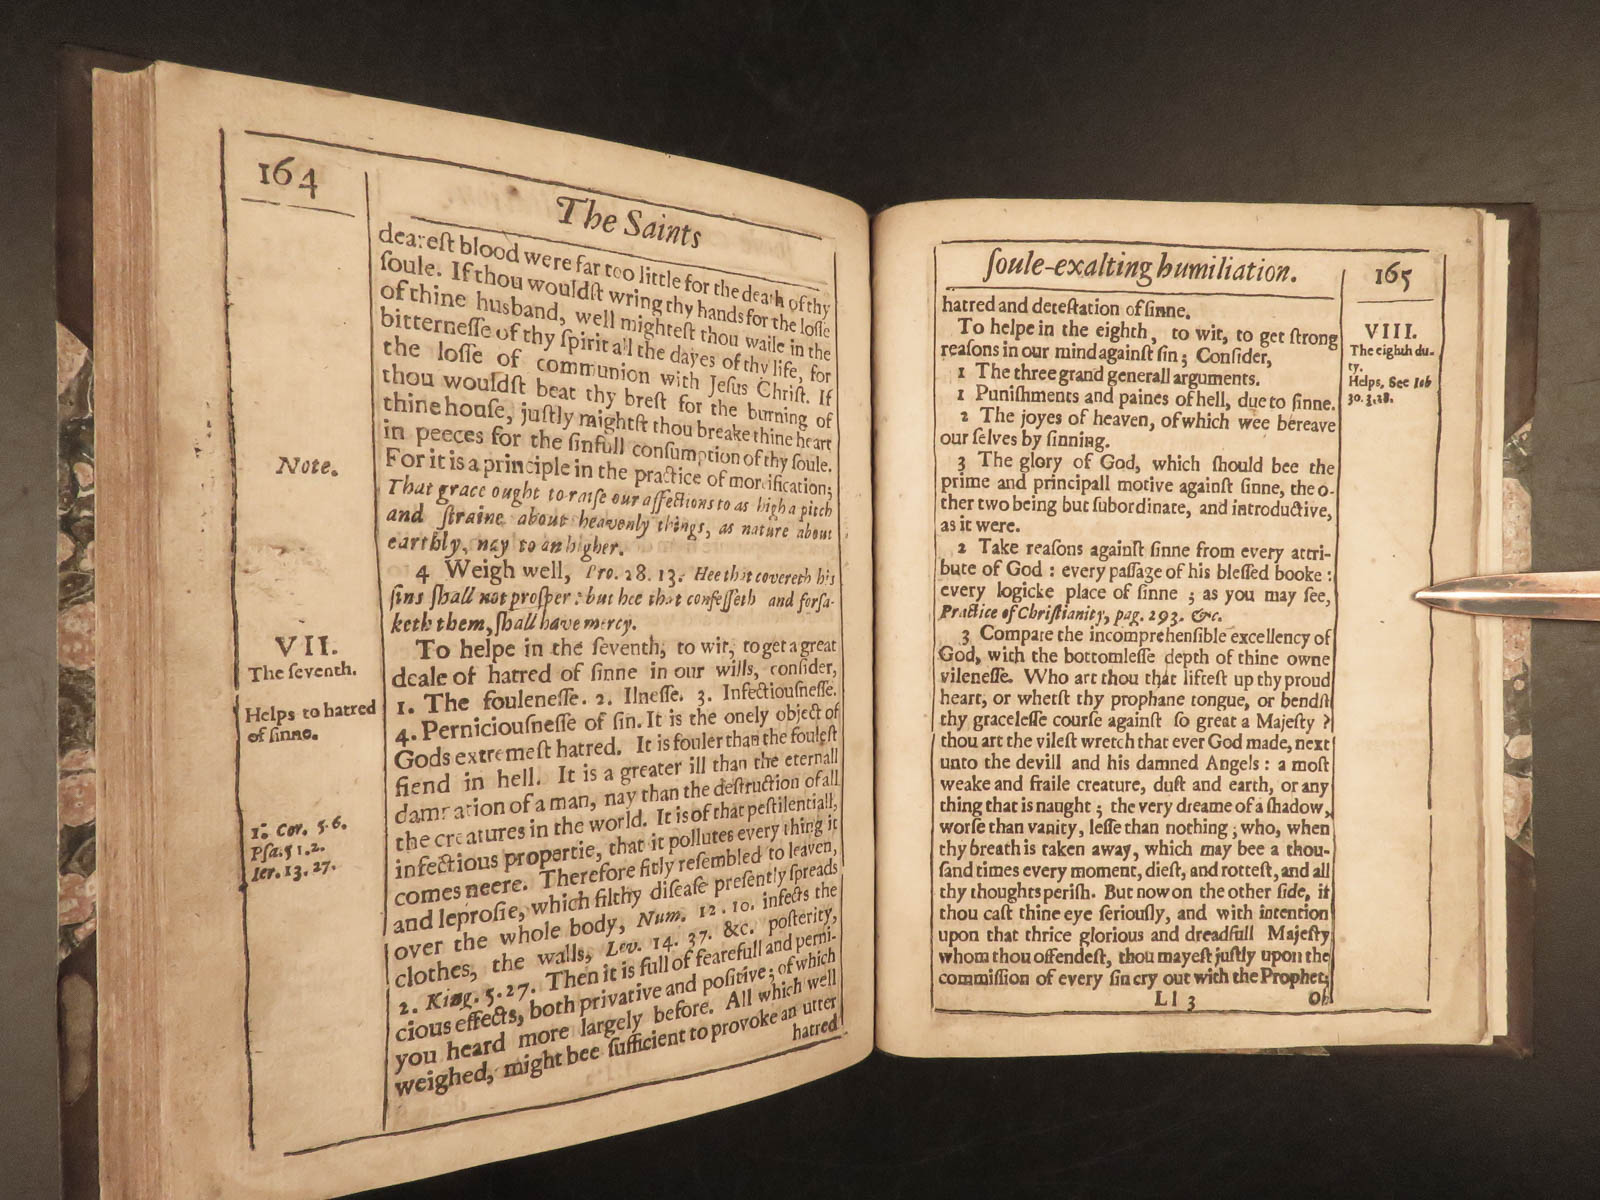 164
The Saints
deareſt blood were far too little for the death of thy
ſoule. If thou wouldſt wring thy hands for the loſſe
of thine husband, well mighteſt thou waile in the
bitterneſſe of thy ſpirit all the dayes of thy life, for
the loſſe of communion with Jeſus Chriſt. If
thou wouldſt beat thy breſt for the burning of
thine houſe, juſtly mightſt thou breake thine heart
in peeces for the ſinfull conſumption of thy ſoule.
Note.
For it is a principle in the practice of mortification;
That grace ought to raiſe our affections to as high a pitch
and ſtraine about heavenly things, as nature about
earthly, nay to an higher.
4 Weigh well, Pro. 28. 13. Hee that covereth his
ſins ſhall not proſper: but hee that confeſſeth and forſa-
keth them, ſhall have mercy.
VII.
The ſeventh.
Helps to hatred
of ſinne.
To helpe in the ſeventh, to wit, to get a great
deale of hatred of ſinne in our wills, conſider,
1. The fouleneſſe. 2. Ilneſſe. 3. Infectiouſneſſe.
4. Perniciouſneſſe of ſin. It is the onely object of
Gods extremeſt hatred. It is fouler than the fouleſt
fiend in hell. It is a greater ill than the eternall
damnation of a man, nay than the deſtruction of all
the creatures in the world. It is of that peſtilentiall,
infectious propertie, that it pollutes every thing it
comes neere. Therefore fitly reſembled to leaven,
1. Cor. 5.6.
Pſa. 51.2.
Ier. 13.27.
and leproſie, which filthy diſeaſe preſently ſpreads
over the whole body, Num. 12. 10. infects the
clothes, the walls, Lev. 14. 37. &c. poſterity,
2. King. 5.27. Then it is full of fearefull and perni-
cious effects, both privative and poſitive; of which
you heard more largely before. All which well
weighed, might bee ſufficient to provoke an utter
hatred
ſoule-exalting humiliation.
165
hatred and deteſtation of ſinne.
VIII.
The eighth du-
ty.
Helps. See Iob
30.3.28.
To helpe in the eighth, to wit, to get ſtrong
reaſons in our mind againſt ſin; Conſider,
1 The three grand generall arguments.
1 Puniſhments and paines of hell, due to ſinne.
2 The joyes of heaven, of which wee bereave
our ſelves by ſinning.
3 The glory of God, which ſhould bee the
prime and principall motive againſt ſinne, the o-
ther two being but ſubordinate, and introductive,
as it were.
2 Take reaſons againſt ſinne from every attri-
bute of God : every paſſage of his bleſſed booke :
every logicke place of ſinne ; as you may ſee,
Practice of Chriſtianity, pag. 293. &c.
3 Compare the incomprehenſible excellency of
God, with the bottomleſſe depth of thine owne
vileneſſe. Who art thou that lifteſt up thy proud
heart, or whetſt thy prophane tongue, or bendſt
thy graceleſſe courſe againſt ſo great a Majeſty ?
thou art the vileſt wretch that ever God made, next
unto the devill and his damned Angels : a moſt
weake and fraile creature, duſt and earth, or any
thing that is naught ; the very dreame of a ſhadow,
worſe than vanity, leſſe than nothing ; who, when
thy breath is taken away, which may bee a thou-
ſand times every moment, dieſt, and rotteſt, and all
thy thoughts periſh. But now on the other ſide, if
thou caſt thine eye ſeriouſly, and with intention
upon that thrice glorious and dreadfull Majeſty
whom thou offendeſt, thou mayeſt juſtly upon the
commiſſion of every ſin cry out with the Prophet;
Ll 3
Oh